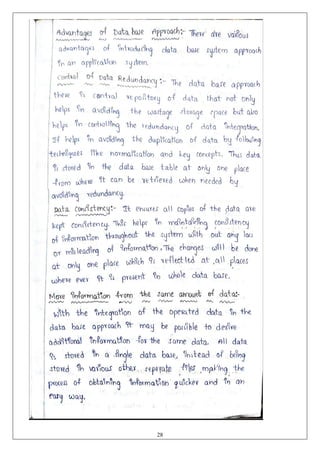 Advantages of Data base Approach:- There are various
advantages of introducing data base system approach
in an application system.
control of Data Redundancy:- The data base approach
there is central repolitory of data that not only
helps in avoiding the wastage storage space but also
helps in controlling the redundancy of data integration.
It helps in avoiding the duplication of data by following
techniques like normalication and key concepts. Thus data
is stored in the data base table at only one place
from where it can be retrieved when needed by
avoiding redundancy.
Data consistency:- It ensures all copies of the data are
kept consistency. This helps in maintaining consistency
of information throughout the system with out any
or misleading of information. The changes will be done
at only one place which is reflected at all places
where ever it is present in whole data base.
More information from the same amount of data:-
With the integration of the operated data in the
data base approach it may be possible to derive
additional information for the same data. All data
is stored in a single data base, instead of being
stored in various other seperate files making the
process of obtaining information quicker and in an
easy way.
28